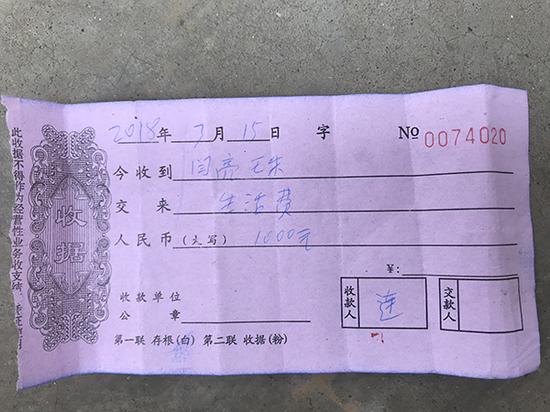 2018年3月15日 字 No 0074020
今收到 闫亮
交来 生活费
人民币(大写) 1000元
¥:
收款单位
公 章
收款人 连
交款人
第一联 存根(白) 第二联 收据(粉)
收据
此收据不得作为经营性业务收支结